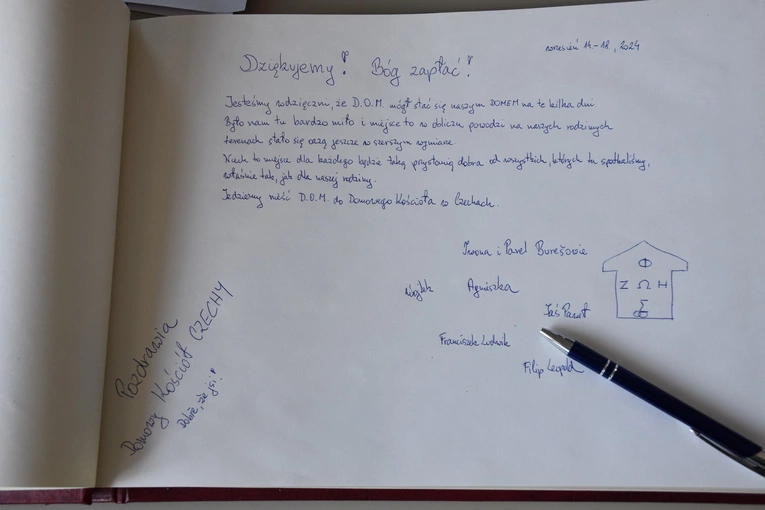 wrzesień 14.-18., 2024
Dziękujemy! Bóg zapłać!
Jesteśmy wdzięczni, że D.O.M. mógł stać się naszym DOMEM na te kilka dni.
Było nam tu bardzo miło i miejsce to w obliczu powodzi na naszych rodzinnych
terenach stało się oazą jeszcze w szerszym wymiarze.
Niech to miejsce dla każdego będzie taką przystanią dobra od wszystkich, których tu spotkaliśmy,
właśnie tak, jak dla naszej rodziny.
Jedziemy nieść D.O.M. do Domowego Kościoła w Czechach.
Iwona i Pavel Burešovie
Agnieszka
Jaś Paweł
Franciszek Ludwik
Filip Leopold
Φ
Ζ Ω Η
Σ
Pozdrawia
Domowy Kościół CZECHY
Dobře, že jsi!